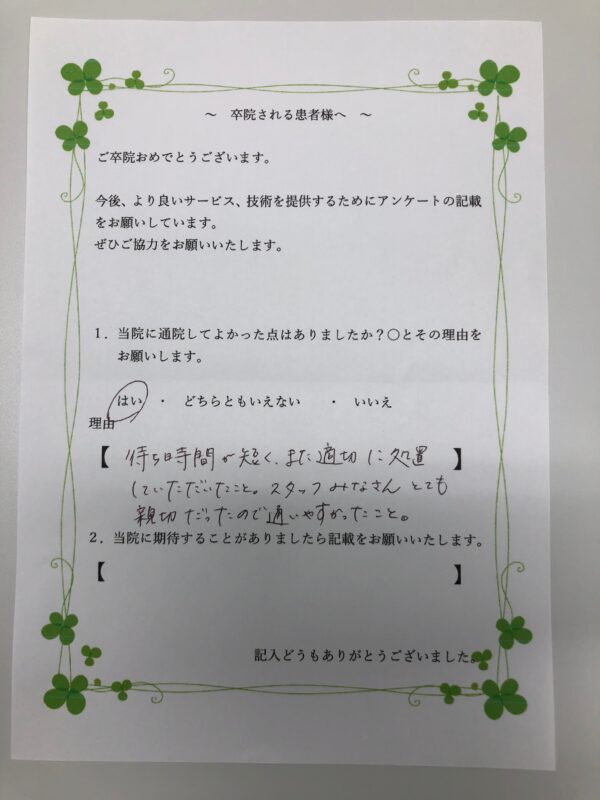 ～　卒院される患者様へ　～
ご卒院おめでとうございます。
今後、より良いサービス、技術を提供するためにアンケートの記載
をお願いしています。
ぜひご協力をお願いいたします。
１．当院に通院してよかった点はありましたか？〇とその理由を
お願いします。
はい　・　どちらともいえない　　・　いいえ
理由
【 待ち時間が短く、また適切に処置 】
していただいたこと。スタッフみなさんとても
親切だったので通いやすかったこと。
２．当院に期待することがありましたら記載をお願いいたします。
【　　　　】
記入どうもありがとうございました。